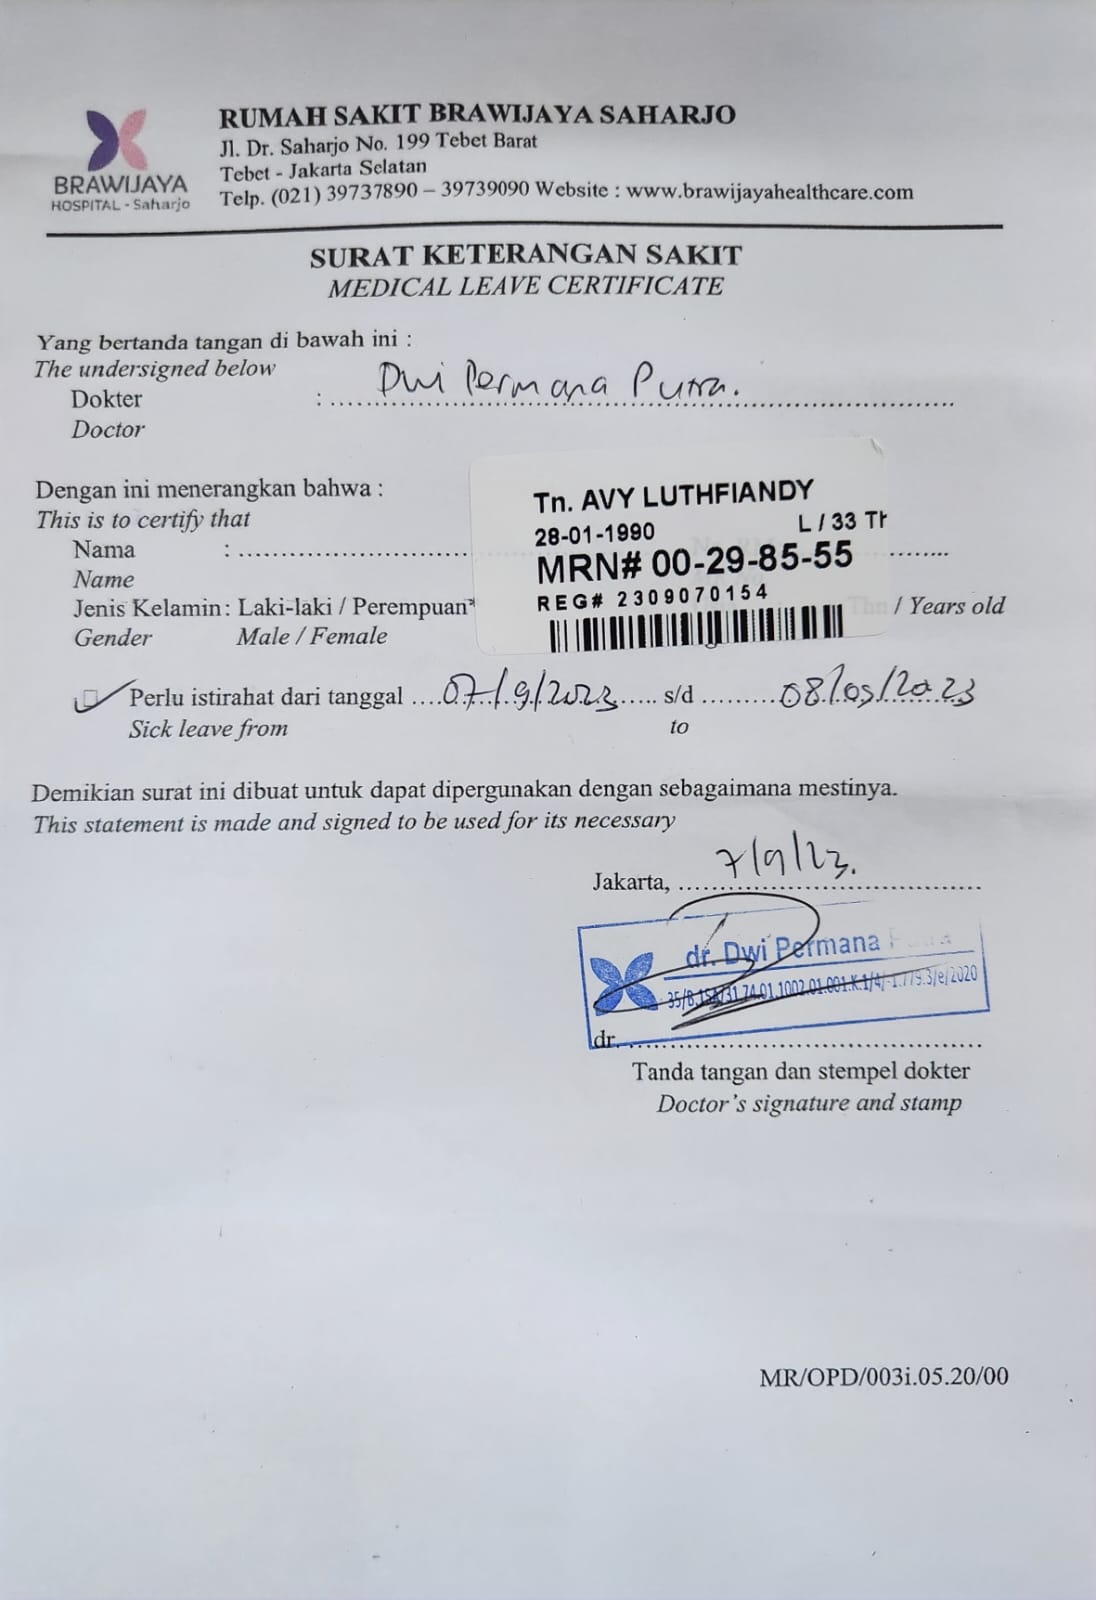 RUMAH SAKIT BRAWIJAYA SAHARJO
Jl. Dr. Saharjo No. 199 Tebet Barat
Tebet - Jakarta Selatan
Telp. (021) 39737890 – 39739090 Website : www.brawijayahealthcare.com
BRAWIJAYA
HOSPITAL - Saharjo
SURAT KETERANGAN SAKIT
MEDICAL LEAVE CERTIFICATE
Yang bertanda tangan di bawah ini :
The undersigned below
Dokter : Dwi Permana Putra.
Doctor
Dengan ini menerangkan bahwa :
This is to certify that
Nama :
Name
Jenis Kelamin : Laki-laki / Perempuan*
Gender Male / Female
Tn. AVY LUTHFIANDY
28-01-1990 L / 33 Th
MRN# 00-29-85-55
REG# 2309070154
Thn / Years old
Perlu istirahat dari tanggal 07/9/2023 s/d 08/09/2023
Sick leave from to
Demikian surat ini dibuat untuk dapat dipergunakan dengan sebagaimana mestinya.
This statement is made and signed to be used for its necessary
Jakarta, 7/9/23.
dr. Dwi Permana
dr.
Tanda tangan dan stempel dokter
Doctor's signature and stamp
MR/OPD/003i.05.20/00